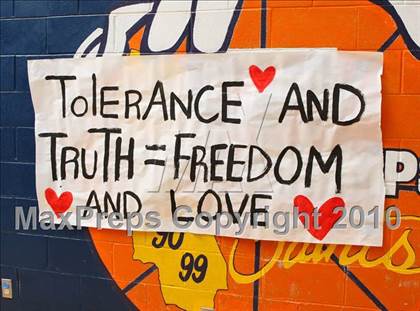 TOLERANCE AND
TRUTH = FREEDOM
AND LOVE
MaxPreps Copyright 2010
90
99